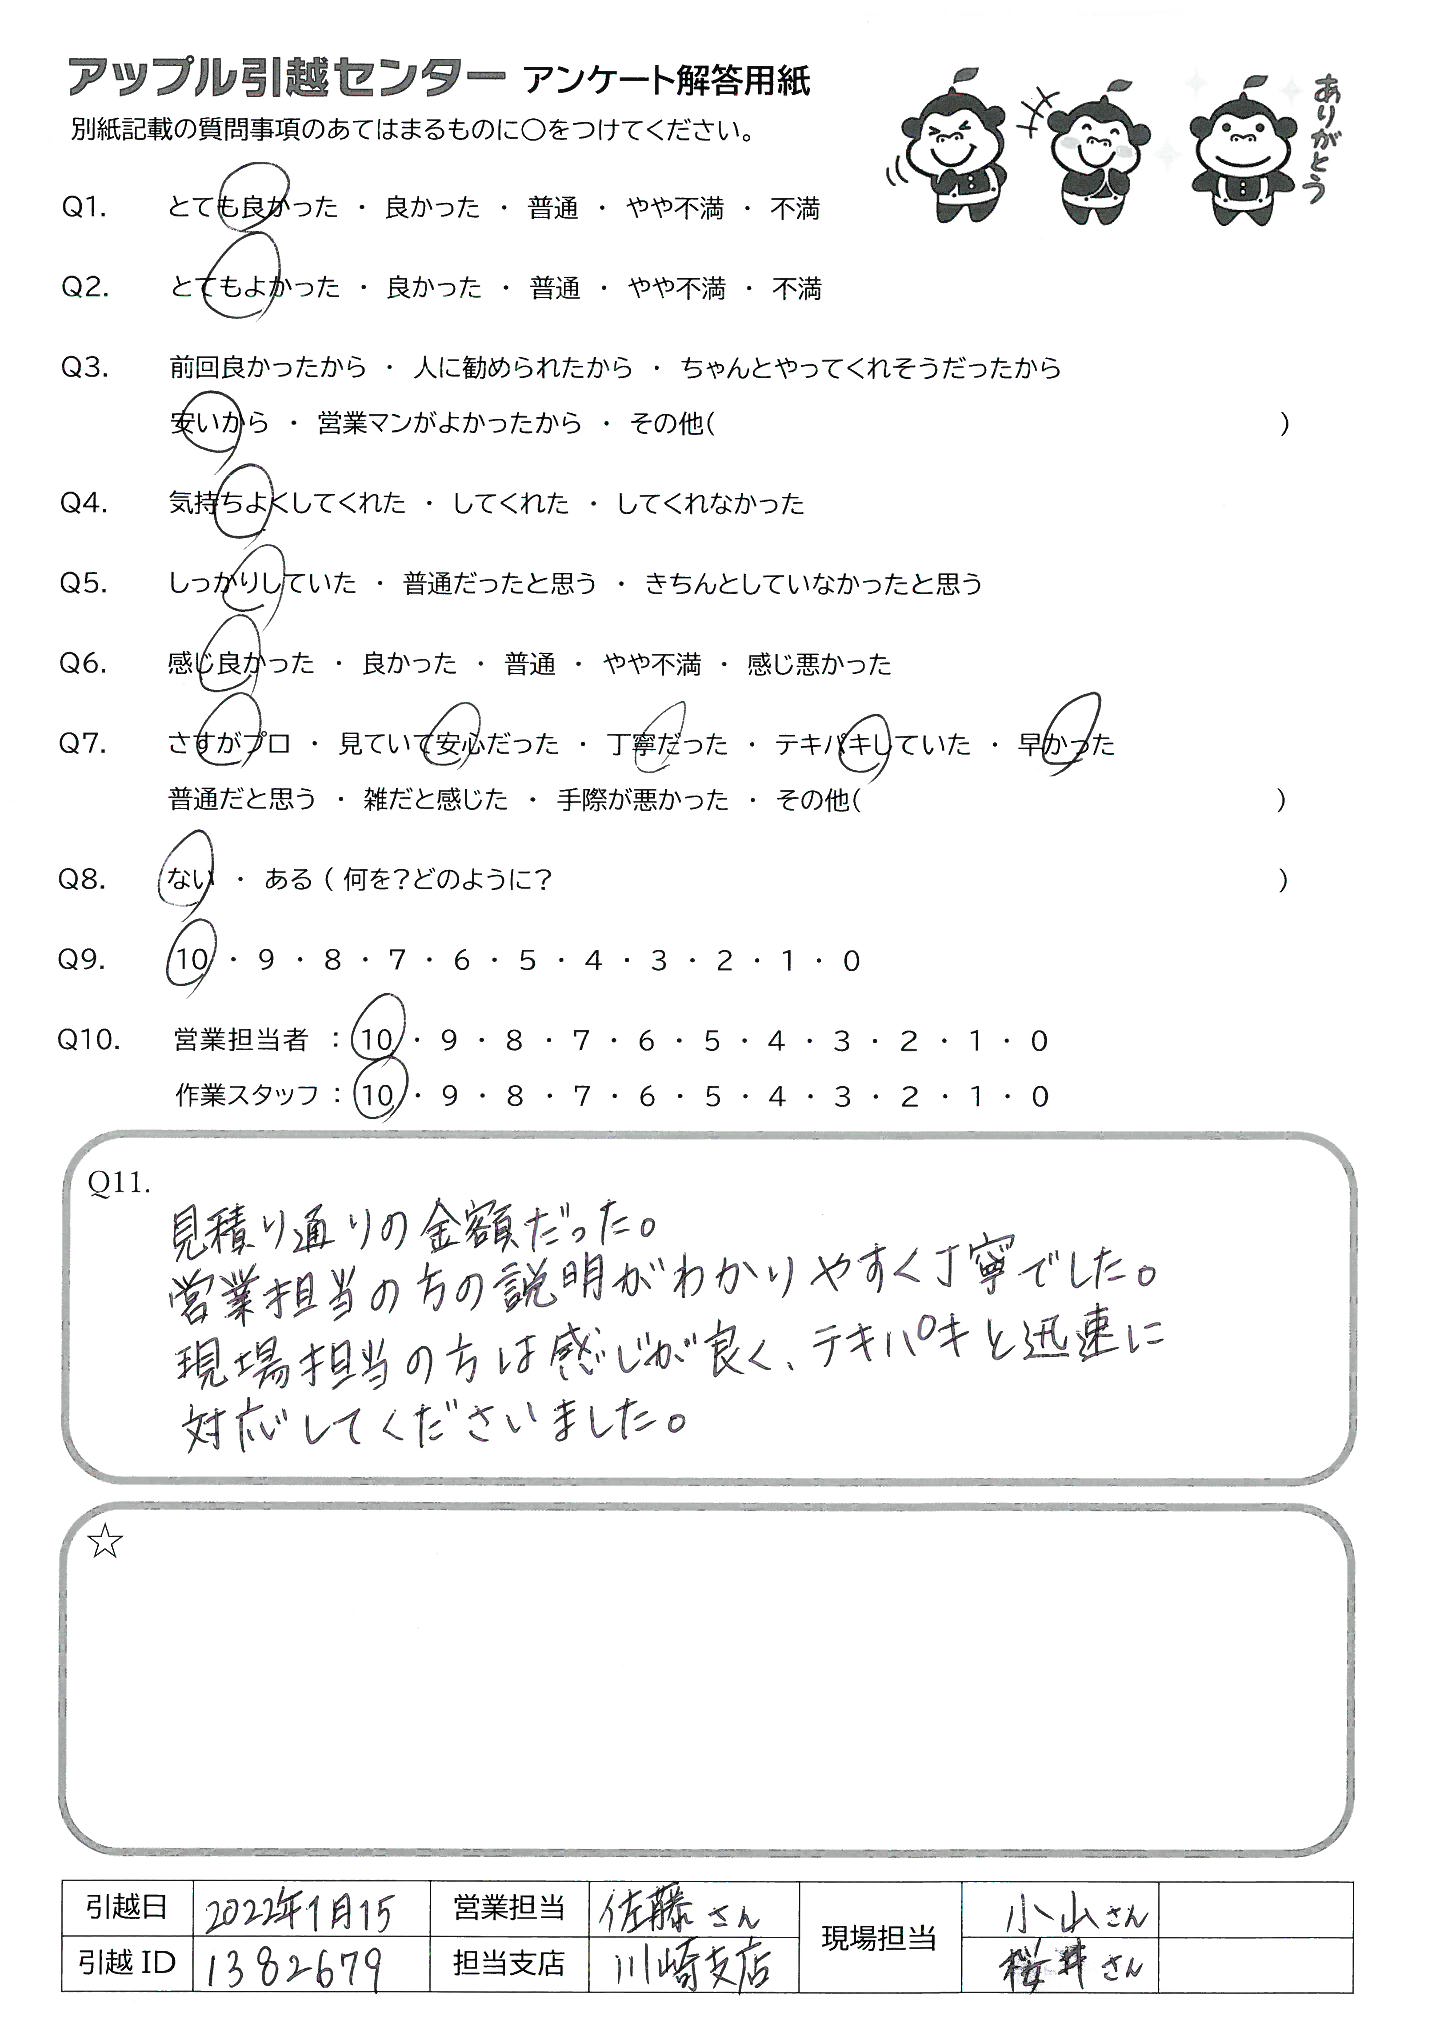 アップル引越センター アンケート解答用紙
別紙記載の質問事項のあてはまるものに○をつけてください。
ありがとう
Q1. とても良かった ・ 良かった ・ 普通 ・ やや不満 ・ 不満
Q2. とてもよかった ・ 良かった ・ 普通 ・ やや不満 ・ 不満
Q3. 前回良かったから ・ 人に勧められたから ・ ちゃんとやってくれそうだったから
安いから ・ 営業マンがよかったから ・ その他( )
Q4. 気持ちよくしてくれた ・ してくれた ・ してくれなかった
Q5. しっかりしていた ・ 普通だったと思う ・ きちんとしていなかったと思う
Q6. 感じ良かった ・ 良かった ・ 普通 ・ やや不満 ・ 感じ悪かった
Q7. さすがプロ ・ 見ていて安心だった ・ 丁寧だった ・ テキパキしていた ・ 早かった
普通だと思う ・ 雑だと感じた ・ 手際が悪かった ・ その他( )
Q8. ない ・ ある ( 何を?どのように? )
Q9. 10 ・ 9 ・ 8 ・ 7 ・ 6 ・ 5 ・ 4 ・ 3 ・ 2 ・ 1 ・ 0
Q10. 営業担当者 : 10 ・ 9 ・ 8 ・ 7 ・ 6 ・ 5 ・ 4 ・ 3 ・ 2 ・ 1 ・ 0
作業スタッフ : 10 ・ 9 ・ 8 ・ 7 ・ 6 ・ 5 ・ 4 ・ 3 ・ 2 ・ 1 ・ 0
Q11.
見積り通りの金額だった。
営業担当の方の説明がわかりやすく丁寧でした。
現場担当の方は感じが良く、テキパキと迅速に
対応してくださいました。
☆
引越日 2022年1月15 営業担当 佐藤さん 現場担当 小山さん
引越ID 1382679 担当支店 川崎支店 桜井さん